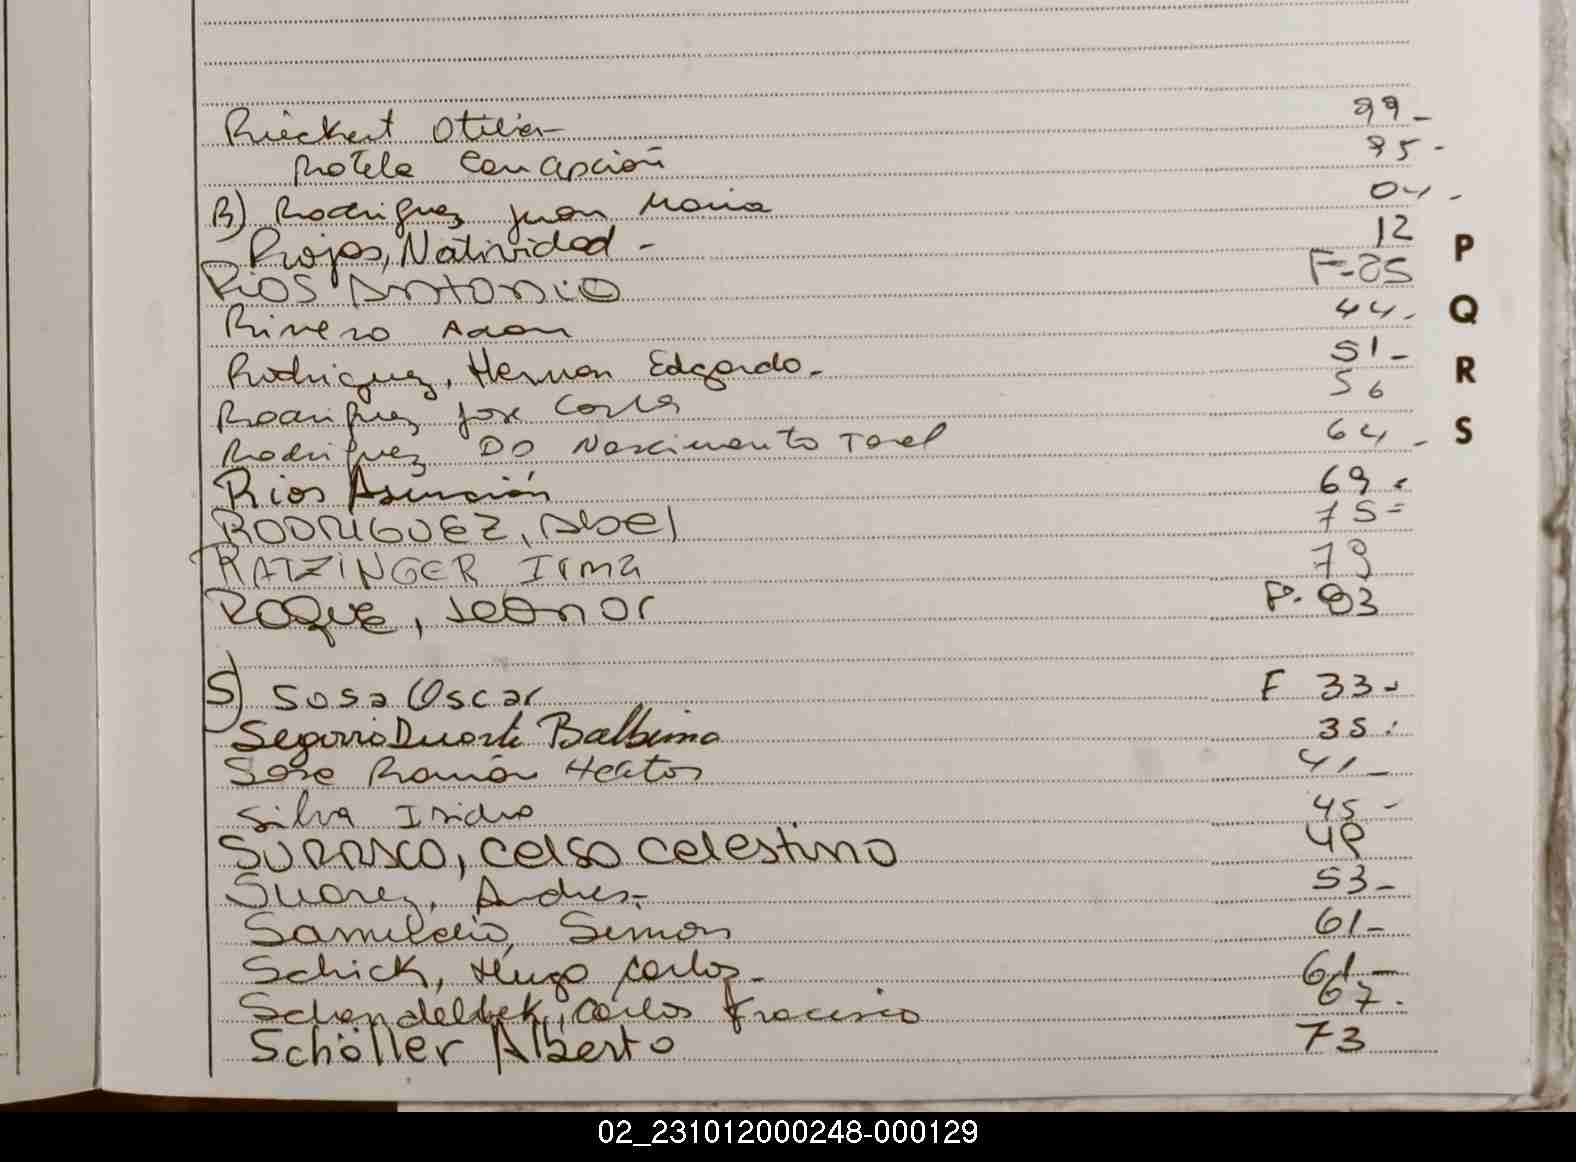 Rieckert Otilia 99-
Rotela Concepción 95-
R) Rodriguez Juan Maria 04-
Rojas, Natividad - 12
P
RIOS ANTONIO F-25
Rivero Adan 44.
Q
Rodriguez, Hernan Edgardo. 51-
R
Rodriguez Jose Carlos 56
Rodriguez Do Nascimento 64-
S
Rios Asunción 69
RODRIGUEZ, Abel 75=
RATZINGER Irma 79
ROQUE, Leonor F. 83
S) Sosa Oscar F 33-
Segovia Duarte Balbina 35.
Sosa Ramón Hector 41-
Silva Isidro 45-
SURASCO, Celso Celestino 49
Suarez, Andres.- 53-
Samudio, Simon 61-
Schick, Hugo Carlos- 61-
Carlos Francisco 67.
Schöller Alberto 73
02_231012000248-000129